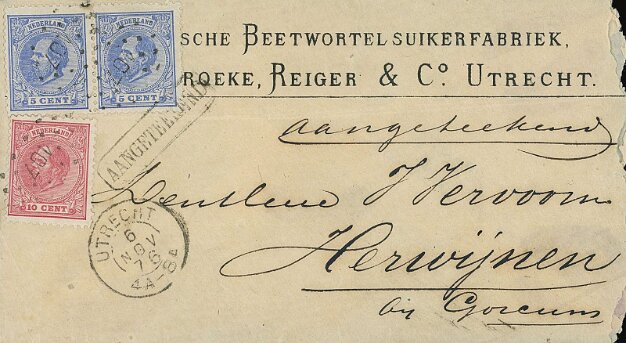 NEDERLAND NEDERLAND
5 CENT 5 CENT
SCHE BEETWORTELSUIKERFABRIEK,
ROEKE, REIGER & Co. UTRECHT.
NEDERLAND
10 CENT
AANGETEEKEND
aangeteekend
J Vervoorn
Herwijnen
bij Gorcum
UTRECHT
6
NOV
76
4A-8A